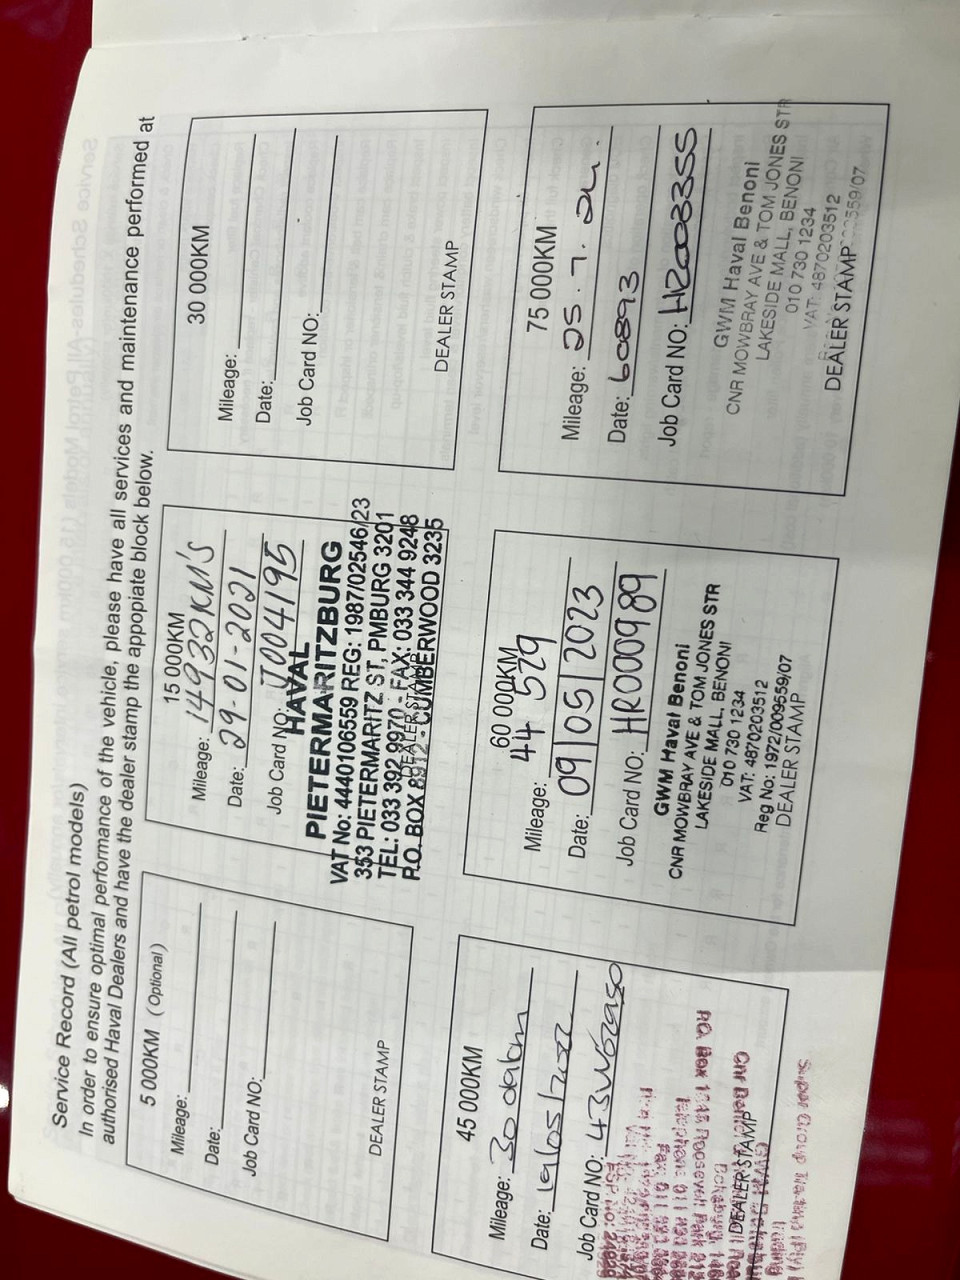 Service Record (All petrol models)
In order to ensure optimal performance of the vehicle, please have all services and maintenance performed at
authorised Haval Dealers and have the dealer stamp the appopiate block below.
5 000KM (Optional)
Mileage:
Date:
Job Card NO:
DEALER STAMP
15 000KM
Mileage: 14932KM'S
Date: 29-01-2021
Job Card NO: J004195
HAVAL
PIETERMARITZBURG
VAT No: 4440106559 REG: 1987/02546/23
353 PIETERMARITZ ST, PMBURG 3201
TEL: 033 392 9970 - FAX: 033 344 9248
DEALER STAMP
P.O. BOX 8912 - CUMBERWOOD 3235
30 000KM
Mileage:
Date:
Job Card NO:
DEALER STAMP
45 000KM
Mileage:
Date:
Job Card NO:
DEALER STAMP
60 000KM
Mileage: 44 529
Date: 09/05/2023
Job Card NO: HR000989
GWM Haval Benoni
CNR MOWBRAY AVE & TOM JONES STR
LAKESIDE MALL, BENONI
010 730 1234
VAT: 4870203512
Reg No: 1972/009559/07
DEALER STAMP
75 000KM
Mileage: 25.7.24.
Date: 60893
Job Card NO: HR008355
GWM Haval Benoni
CNR MOWBRAY AVE & TOM JONES STR
LAKESIDE MALL, BENONI
010 730 1234
VAT: 4870203512
DEALER STAMP